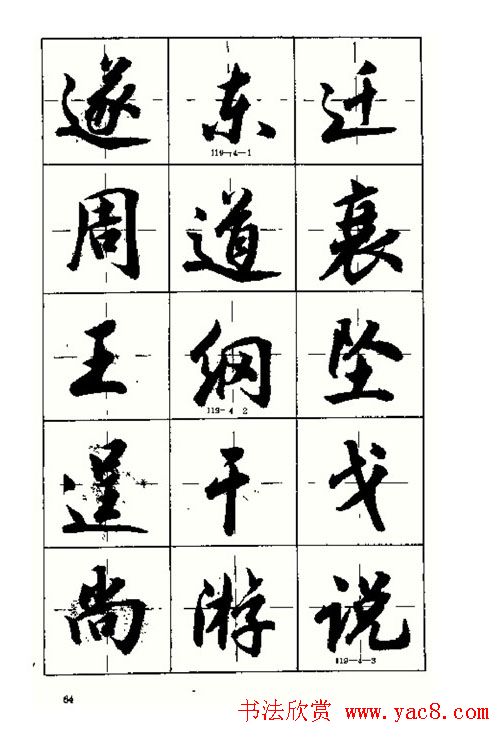 遂东迁
119-4-1
周道衰
王纲坠
119-4 2
逞干戈
尚游说
119-4-3
64
书法欣赏 www.yac8.com